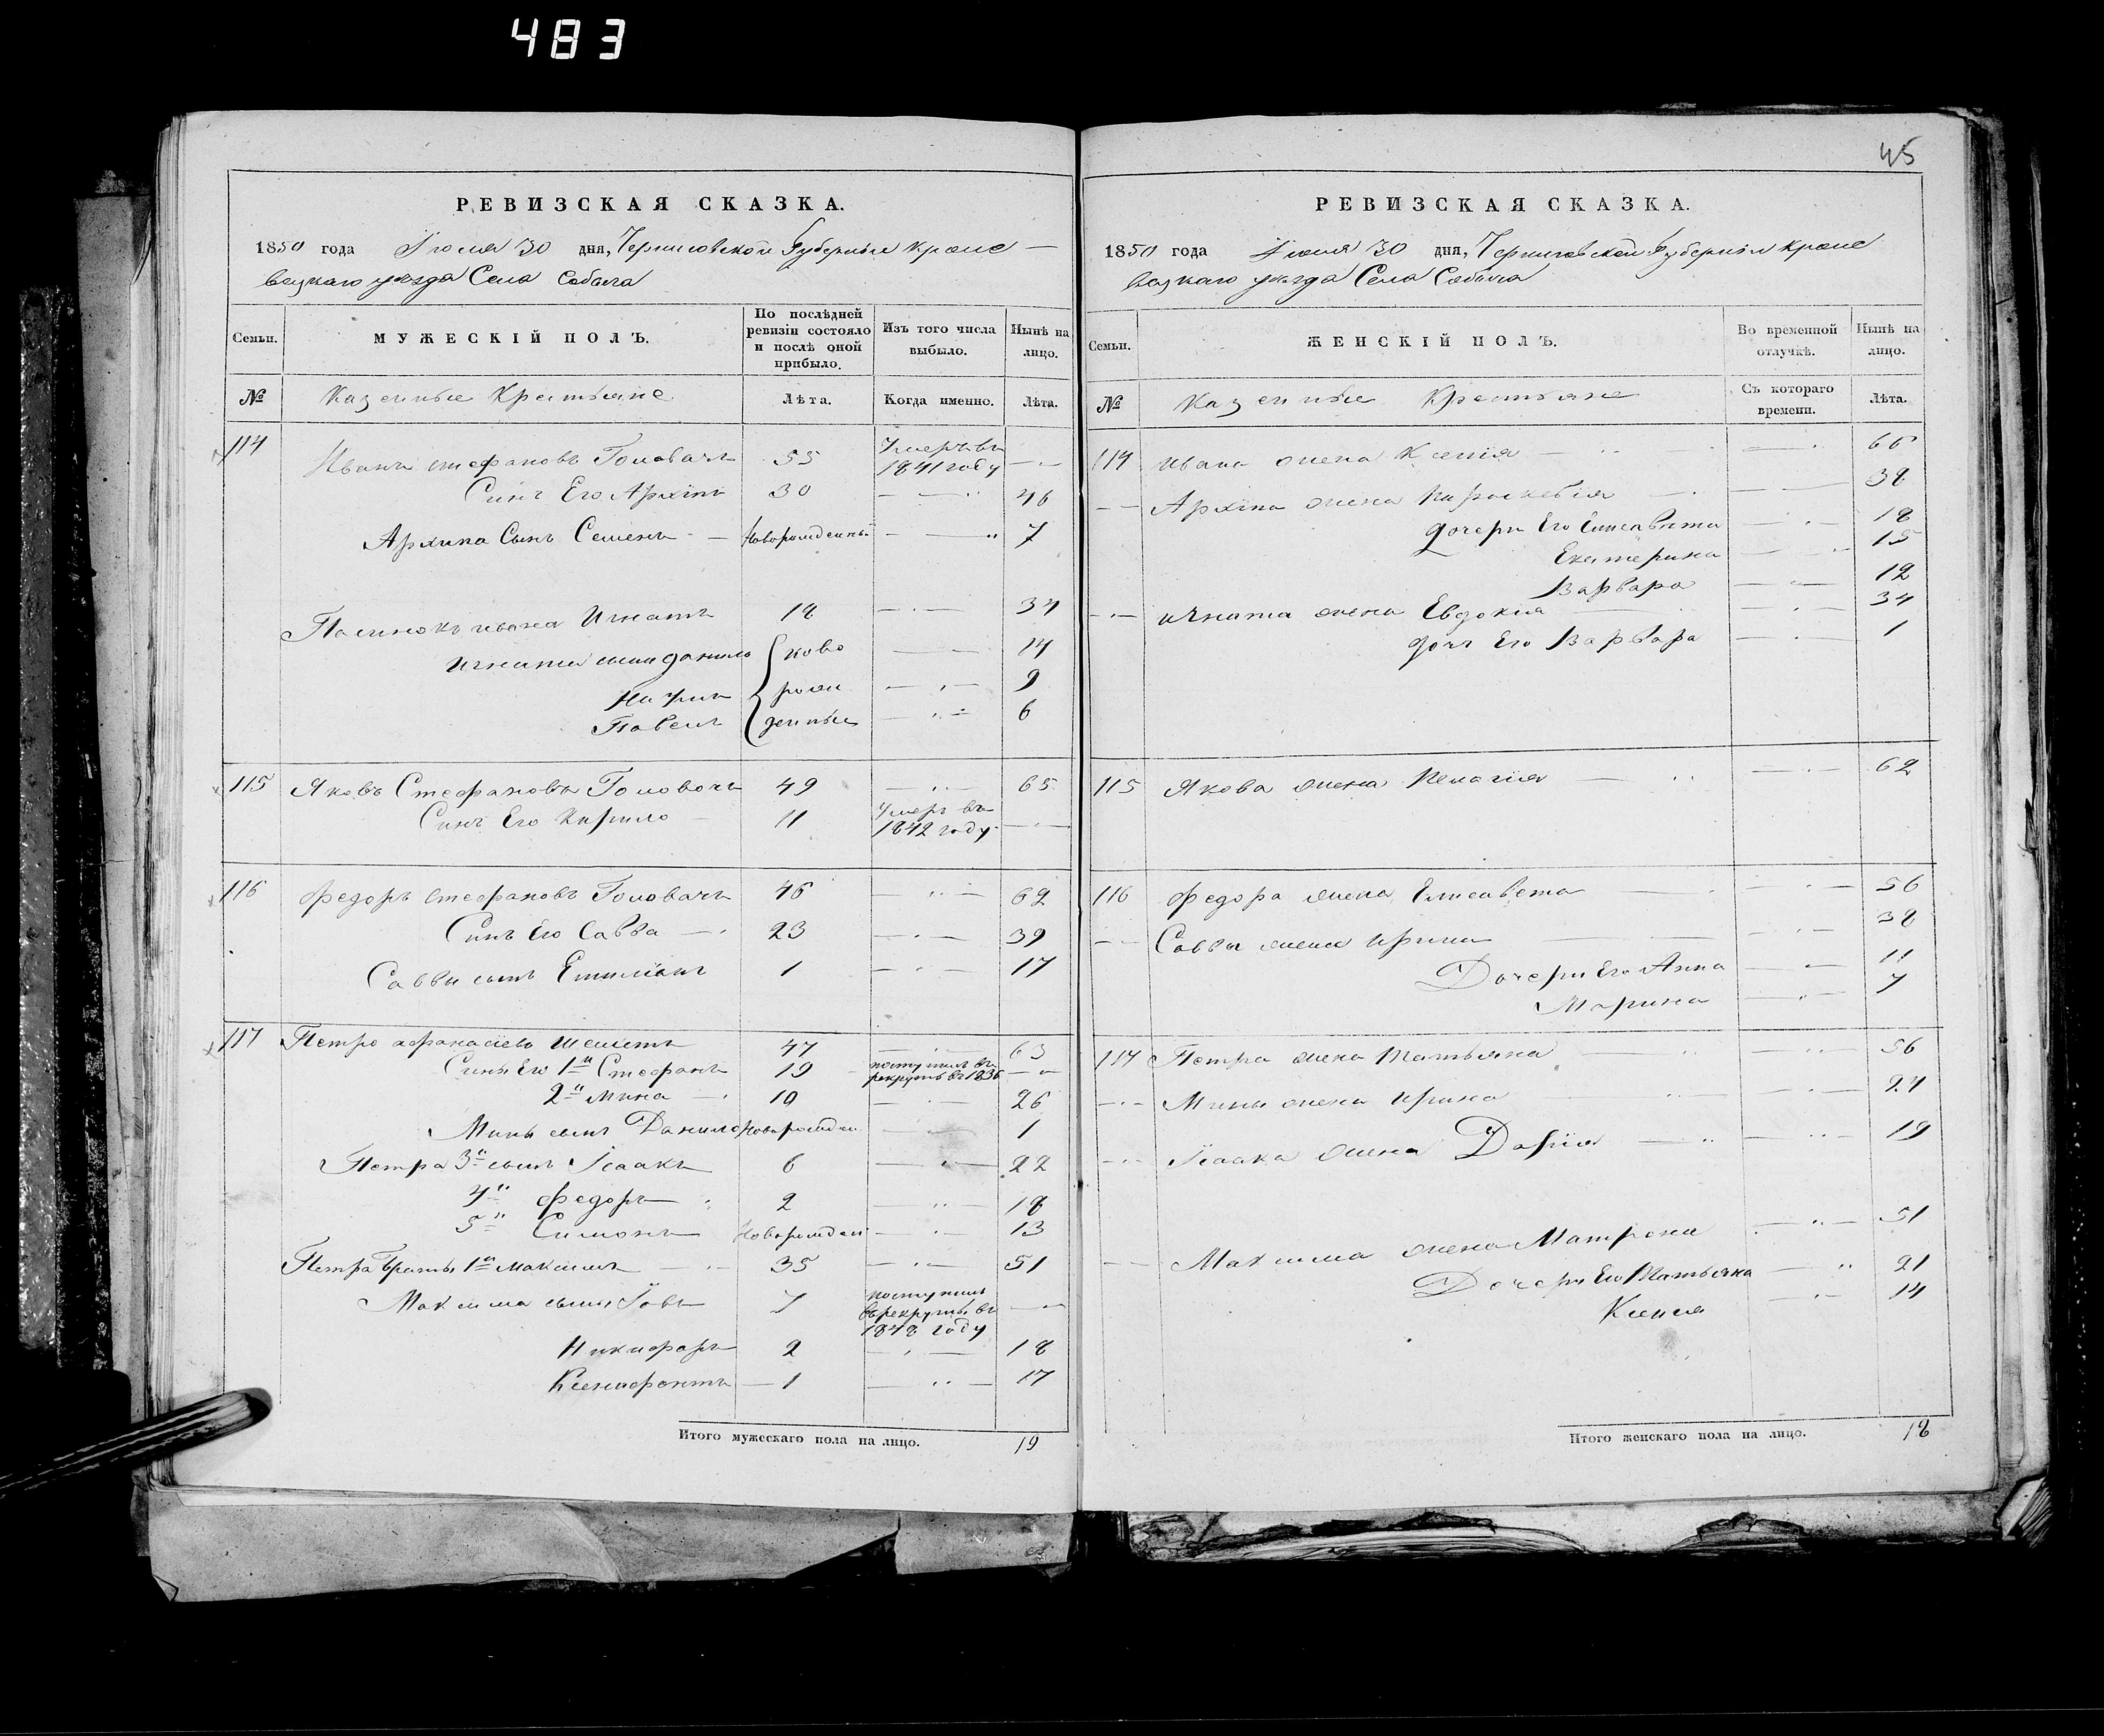 483
РЕВИЗСКАЯ СКАЗКА.
1850 года Июля 30 дня, Черниговской Губерніи Кроле
вецкаго уѣзда Села Собыча
Семьи.
МУЖЕСКІЙ ПОЛЪ.
По послѣдней ревизіи состояло и послѣ оной прибыло.
Изъ того числа выбыло.
Нынѣ на лицо.
№ Казенные Крестьяне Лѣта. Когда именно. Лѣта.
114 Иванъ Стефановъ Головачъ 55 Умеръ въ 1841 году
Сынъ Его Архипъ 30 46
Архипа Сынъ Семенъ новорожденный 7
Ивана Игнатъ 18 34
Игната сыны Данило ново 14
Наумъ рож 9
Павелъ денные 6
115 Яковъ Стефановъ Головачъ 49 65
Сынъ Его Кирило 11 Умеръ въ 1842 году
116 Федоръ Стефановъ Головачъ 46 62
Сынъ Его Савва 23 39
Саввы сынъ Емиліанъ 1 17
117 Петро Афанасіевъ 47 63
Сыны Его 1й Стефанъ 19 поступилъ въ рекруты въ 1836
2й Мина 10 26
Мины сынъ Данило новорожден 1
Петра 3й сынъ Ісаакъ 6 22
4й Федоръ 2 18
5й Симонъ новорожден 13
Петра Братья 1й Максимъ 35 51
Максима сыны Іовъ 7 поступилъ въ рекруты въ 1848 году
Никифоръ 2 18
Ксенофонтъ 1 17
Итого мужескаго пола на лицо. 19
45
РЕВИЗСКАЯ СКАЗКА.
1850 года Июля 30 дня, Черниговской Губерніи Кроле
вецкаго уѣзда Села Собыча
Семьи.
ЖЕНСКІЙ ПОЛЪ.
Во временной отлучкѣ.
Нынѣ на лицо.
№ Казенные Крестьяне Съ котораго времени. Лѣта.
114 Ивана жена Ксенія 66
Архипа жена Параскевія 38
дочери Его Елисавета 18
Екатерина 15
Варвара 12
Игната жена Евдокия 34
дочь Его Варвара 1
115 Якова жена Пелагія 62
116 Федора жена Елисавета 56
Саввы жена Ирина 38
Дочери Его Анна 11
Марина 7
117 Петра жена Татьяна 56
Мины жена Ирина 24
Ісаака жена Дарія 19
Максима жена Матрона 51
Дочери Его Татьяна 21
Ксенія 14
Итого женскаго пола на лицо. 18